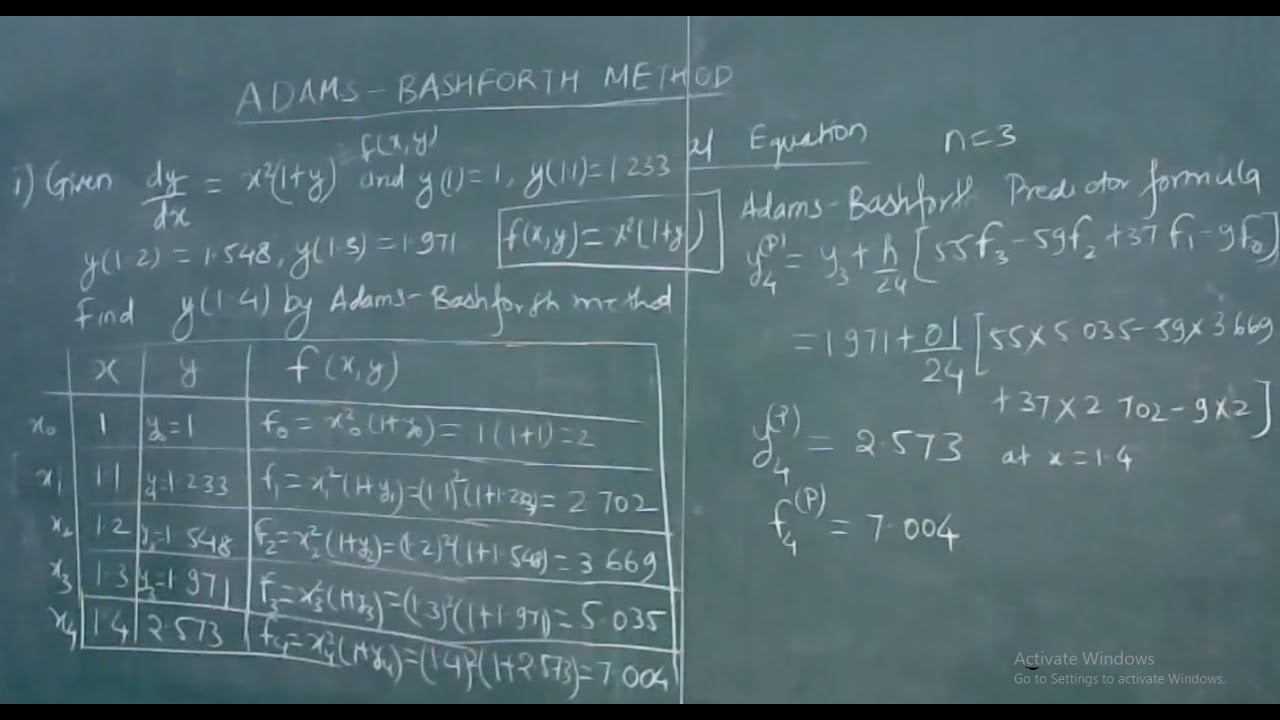 ADAMS - BASHFORTH METHOD
f(x,y)
1) Given dy/dx = x²(1+y) and y(1)=1, y(1.1)=1.233
y(1.2)=1.548, y(1.3)=1.971
f(x,y)=x²(1+y)
Find y(1.4) by Adams-Bashforth method
x y f(x,y)
x₀ 1 y₀=1 f₀ = x₀²(1+y₀) = 1(1+1)=2
x₁ 1.1 y₁=1.233 f₁ = x₁²(1+y₁)=(1.1)²(1+1.233)= 2.702
x₂ 1.2 y₂=1.548 f₂=x₂²(1+y₂)=(1.2)²(1+1.548)=3.669
x₃ 1.3 y₃=1.971 f₃=x₃²(1+y₃)=(1.3)²(1+1.971)=5.035
x₄ 1.4 2.573 f₄=x₄²(1+y₄)=(1.4)²(1+2.573)=7.004
Equation n=3
Adams-Bashforth Predictor formula
y₄⁽ᴾ⁾ = y₃ + h/24 [55f₃ - 59f₂ + 37f₁ - 9f₀]
= 1.971 + 0.1/24 [55×5.035 - 59×3.669
+ 37×2.702 - 9×2]
y₄⁽ᴾ⁾ = 2.573 at x=1.4
f₄⁽ᴾ⁾ = 7.004
Activate Windows
Go to Settings to activate Windows.